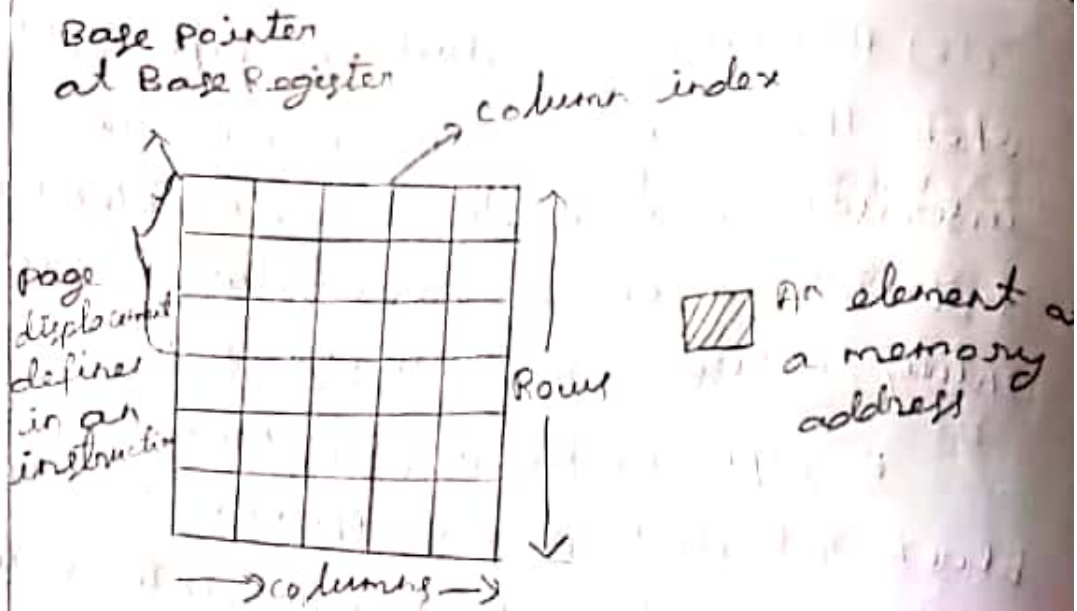 Base pointer
at Base Register
column index
page
displacement
defines
in an
instruction
Rows
An element a
a memory
address
columns